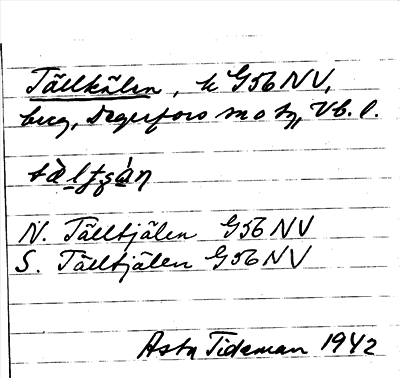 Tällkälen, k G56NV,
berg, Degerfors sn o tg, Vb. l.
N. Tälltjälen G56NV
S. Tälltjälen G56NV
Asta Tideman 1942